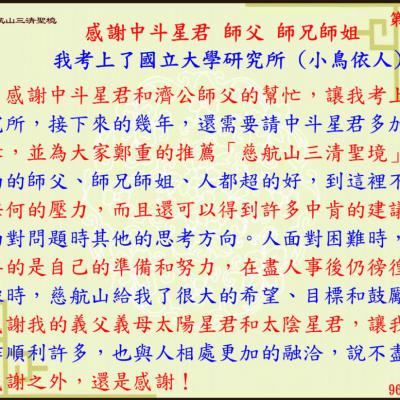 航山三清聖境 第
感謝中斗星君 師父 師兄師姐
我考上了國立大學研究所（小鳥依人）
感謝中斗星君和濟公師父的幫忙，讓我考上
所，接下來的幾年，還需要請中斗星君多加
，並為大家鄭重的推薦「慈航山三清聖境」
的師父、師兄師姐、人都超的好，到這裡不
何的壓力，而且還可以得到許多中肯的建議
對問題時其他的思考方向。人面對困難時，
的是自己的準備和努力，在盡人事後仍徬徨
時，慈航山給我了很大的希望、目標和鼓勵
謝我的義父義母太陽星君和太陰星君，讓我
順利許多，也與人相處更加的融洽，說不盡
謝之外，還是感謝！
96